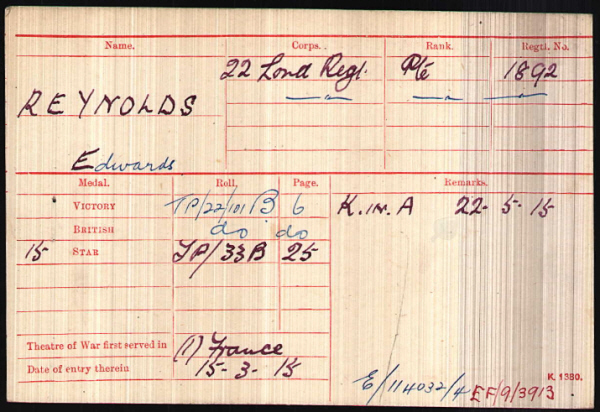 Name. Corps. Rank. Regtl. No.
22 Lond Regt. Pte 1892
REYNOLDS
Edwards
Medal. Roll. Page. Remarks.
VICTORY TP/22/101 B 6 K. in. A 22- 5- 15
BRITISH do do
15 STAR TP/33B 25
Theatre of War first served in (1) France
Date of entry therein 15-3-15
K. 1380.
E/114032/4 EF/9/3913